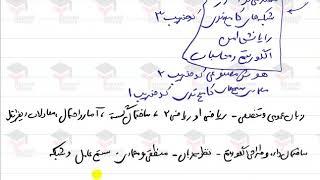 شبکه‌های کامپیوتری
رایانش امن
الگوریتم و محاسبات
ضریب ۳
هوش مصنوعی کد ضریب ۲
معماری سیستم‌های کامپیوتری کد ضریب ۱
زبان عمومی و تخصصی - ریاضی ۱ و ریاضی ۲، ساختمان گسسته، آمار و احتمال، معادلات دیفرانسیل
ساختمان داده و طراحی الگوریتم - نظریه زبان - منطقی و معماری، سیستم عامل و شبکه